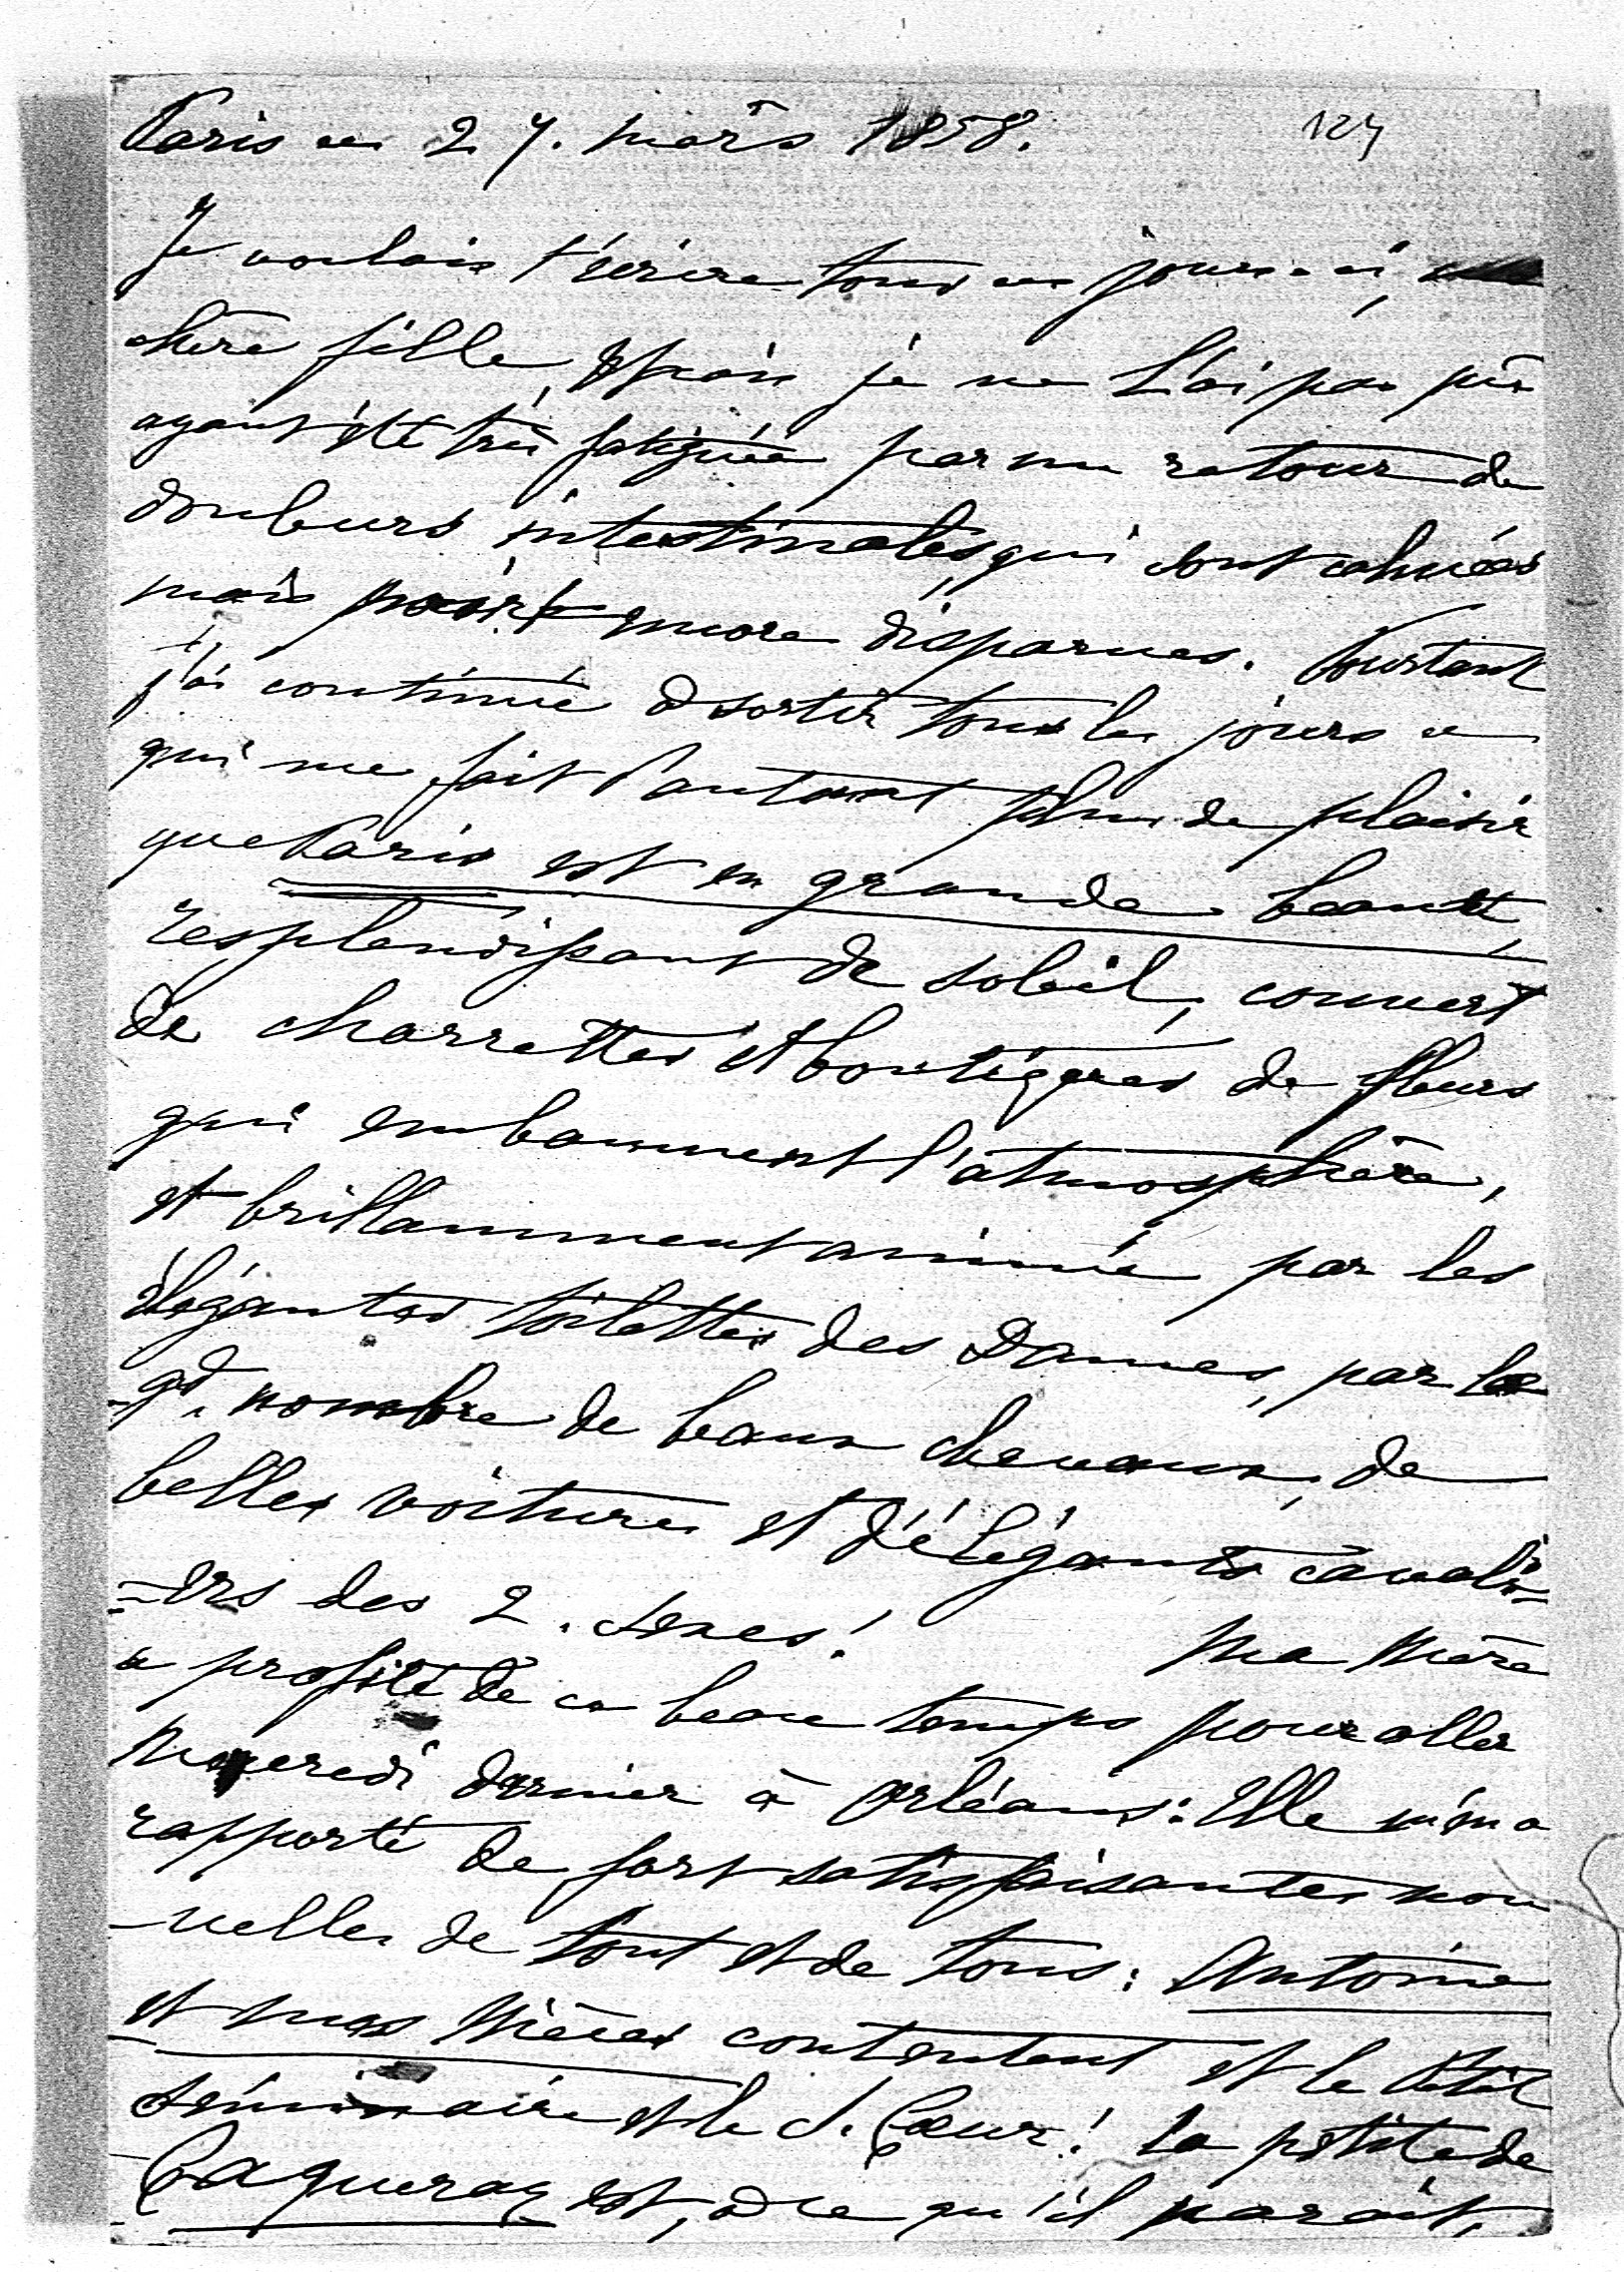 Paris ce 27. mars 1858.
124
Je voulais t'écrire tous ces jours-ci,
chère fille, Mais je ne l'ai pas pu
ayant été très fatiguée par un retour de
douleurs intestinales, qui sont calmées
mais point encore disparues. Pourtant
j'ai continué à sortir tous les jours ce
qui me fait d'autant plus de plaisir
que Paris est en grande beauté,
resplendissant de soleil, couvert
de charrettes et boutiques de fleurs
qui embaument l'atmosphère,
et brillamment animé par les
élégantes toilettes des Dames, par le
gd. nombre de beaux chevaux, de
belles voitures et d'élégants cavali-
-ers des 2. sexes! Ma Mère
a profité de ce beau temps pour aller
Mercredi dernier à Orléans: Elle m'en a
rapporté de fort satisfaisantes nou
-velles de tout et de tous: Antoine
et mes Nièces contentent et le Petit
séminaire et le S. Coeur! La petite de
Caqueray est, à ce qu'il parait,